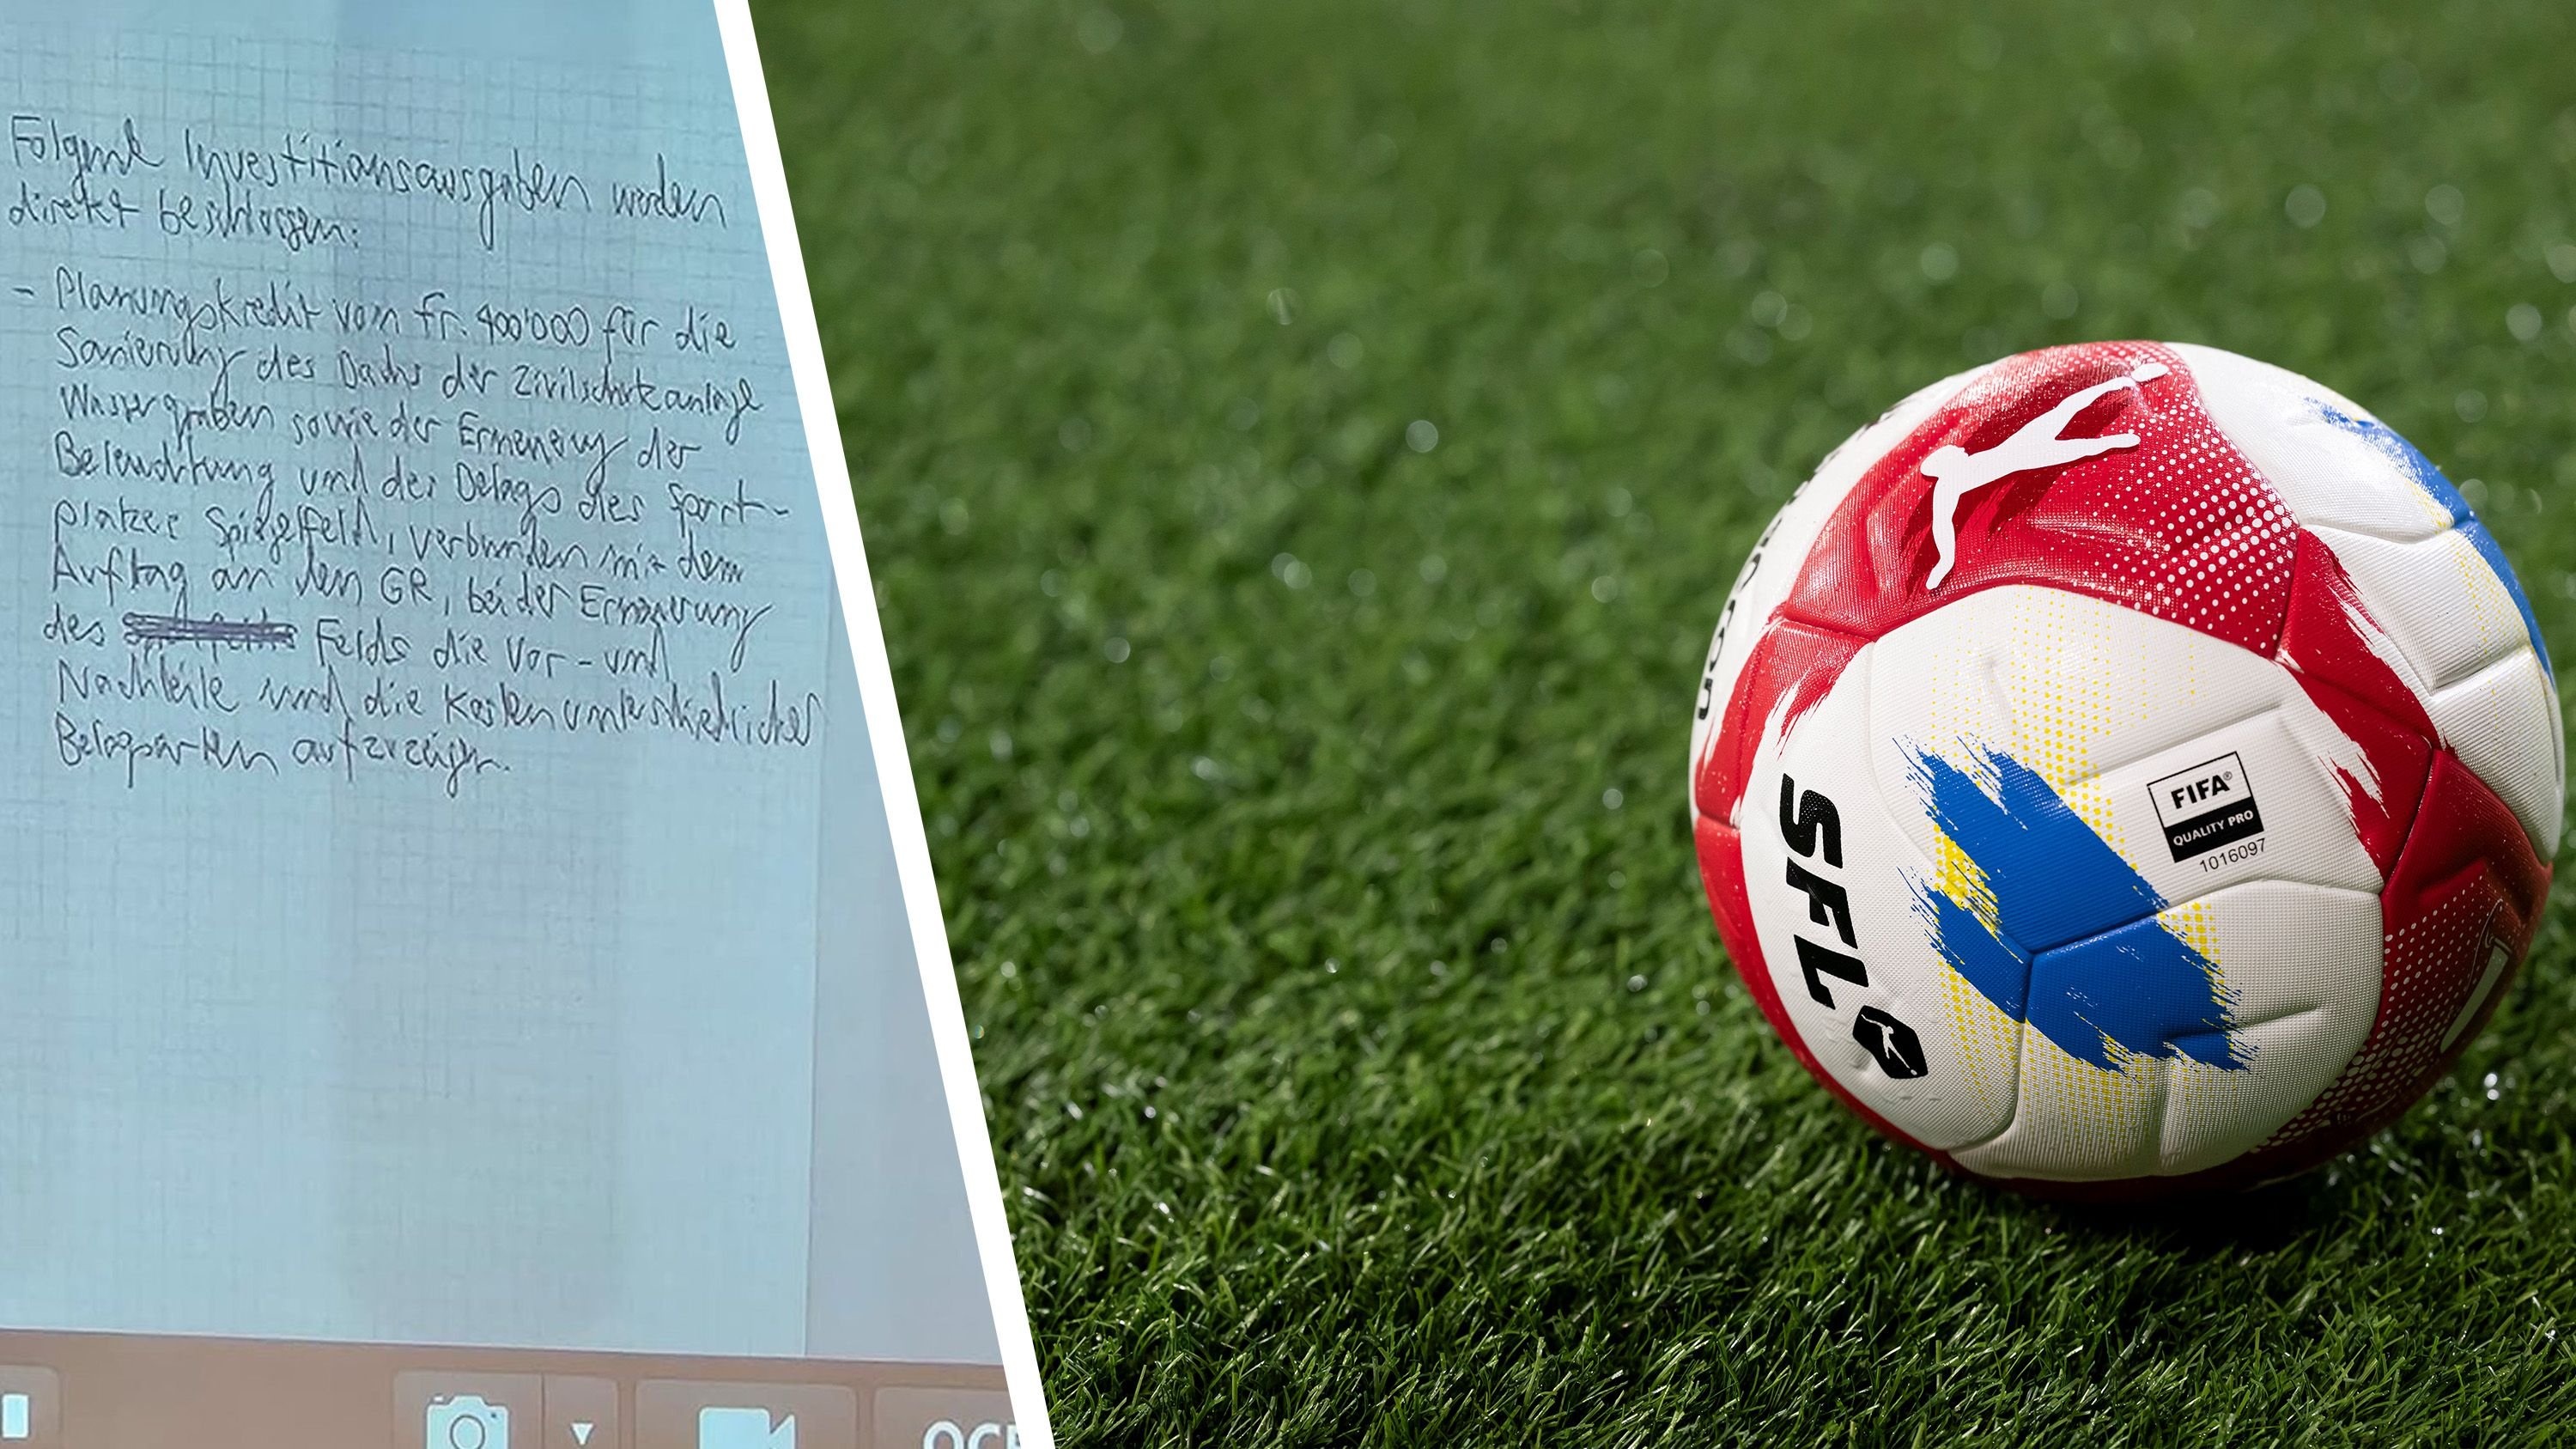 Folgende Investitionsausgaben werden
direkt beschlossen:
- Planungskredit von Fr. 400'000 für die
Sanierung des Dachs der Zivilschutzanlage
Wassergraben sowie der Erneuerung der
Beleuchtung und des Belags des Sport-
platzes Spiegelfeld, verbunden mit dem
Auftag an den GR, bei der Erneuerung
des Felds die Vor- und
Nachteile und die Kosten unterschiedlicher
Belagsarten aufzuzeigen.
SFL
FIFA®
QUALITY PRO
1016097